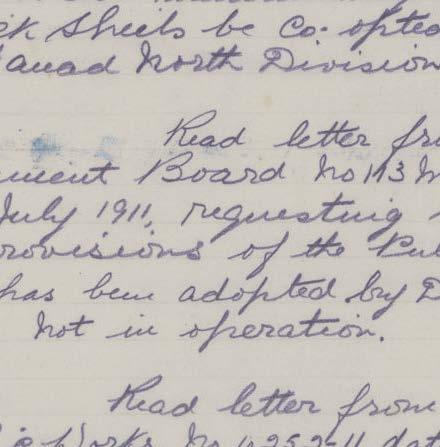 ck Sheils be Co-opted
anad North Division
Read letter fro
ment Board No 113
July 1911, requesting
rovisions of the Pu
has been adopted by D
not in operation.
Read letter from
Works No